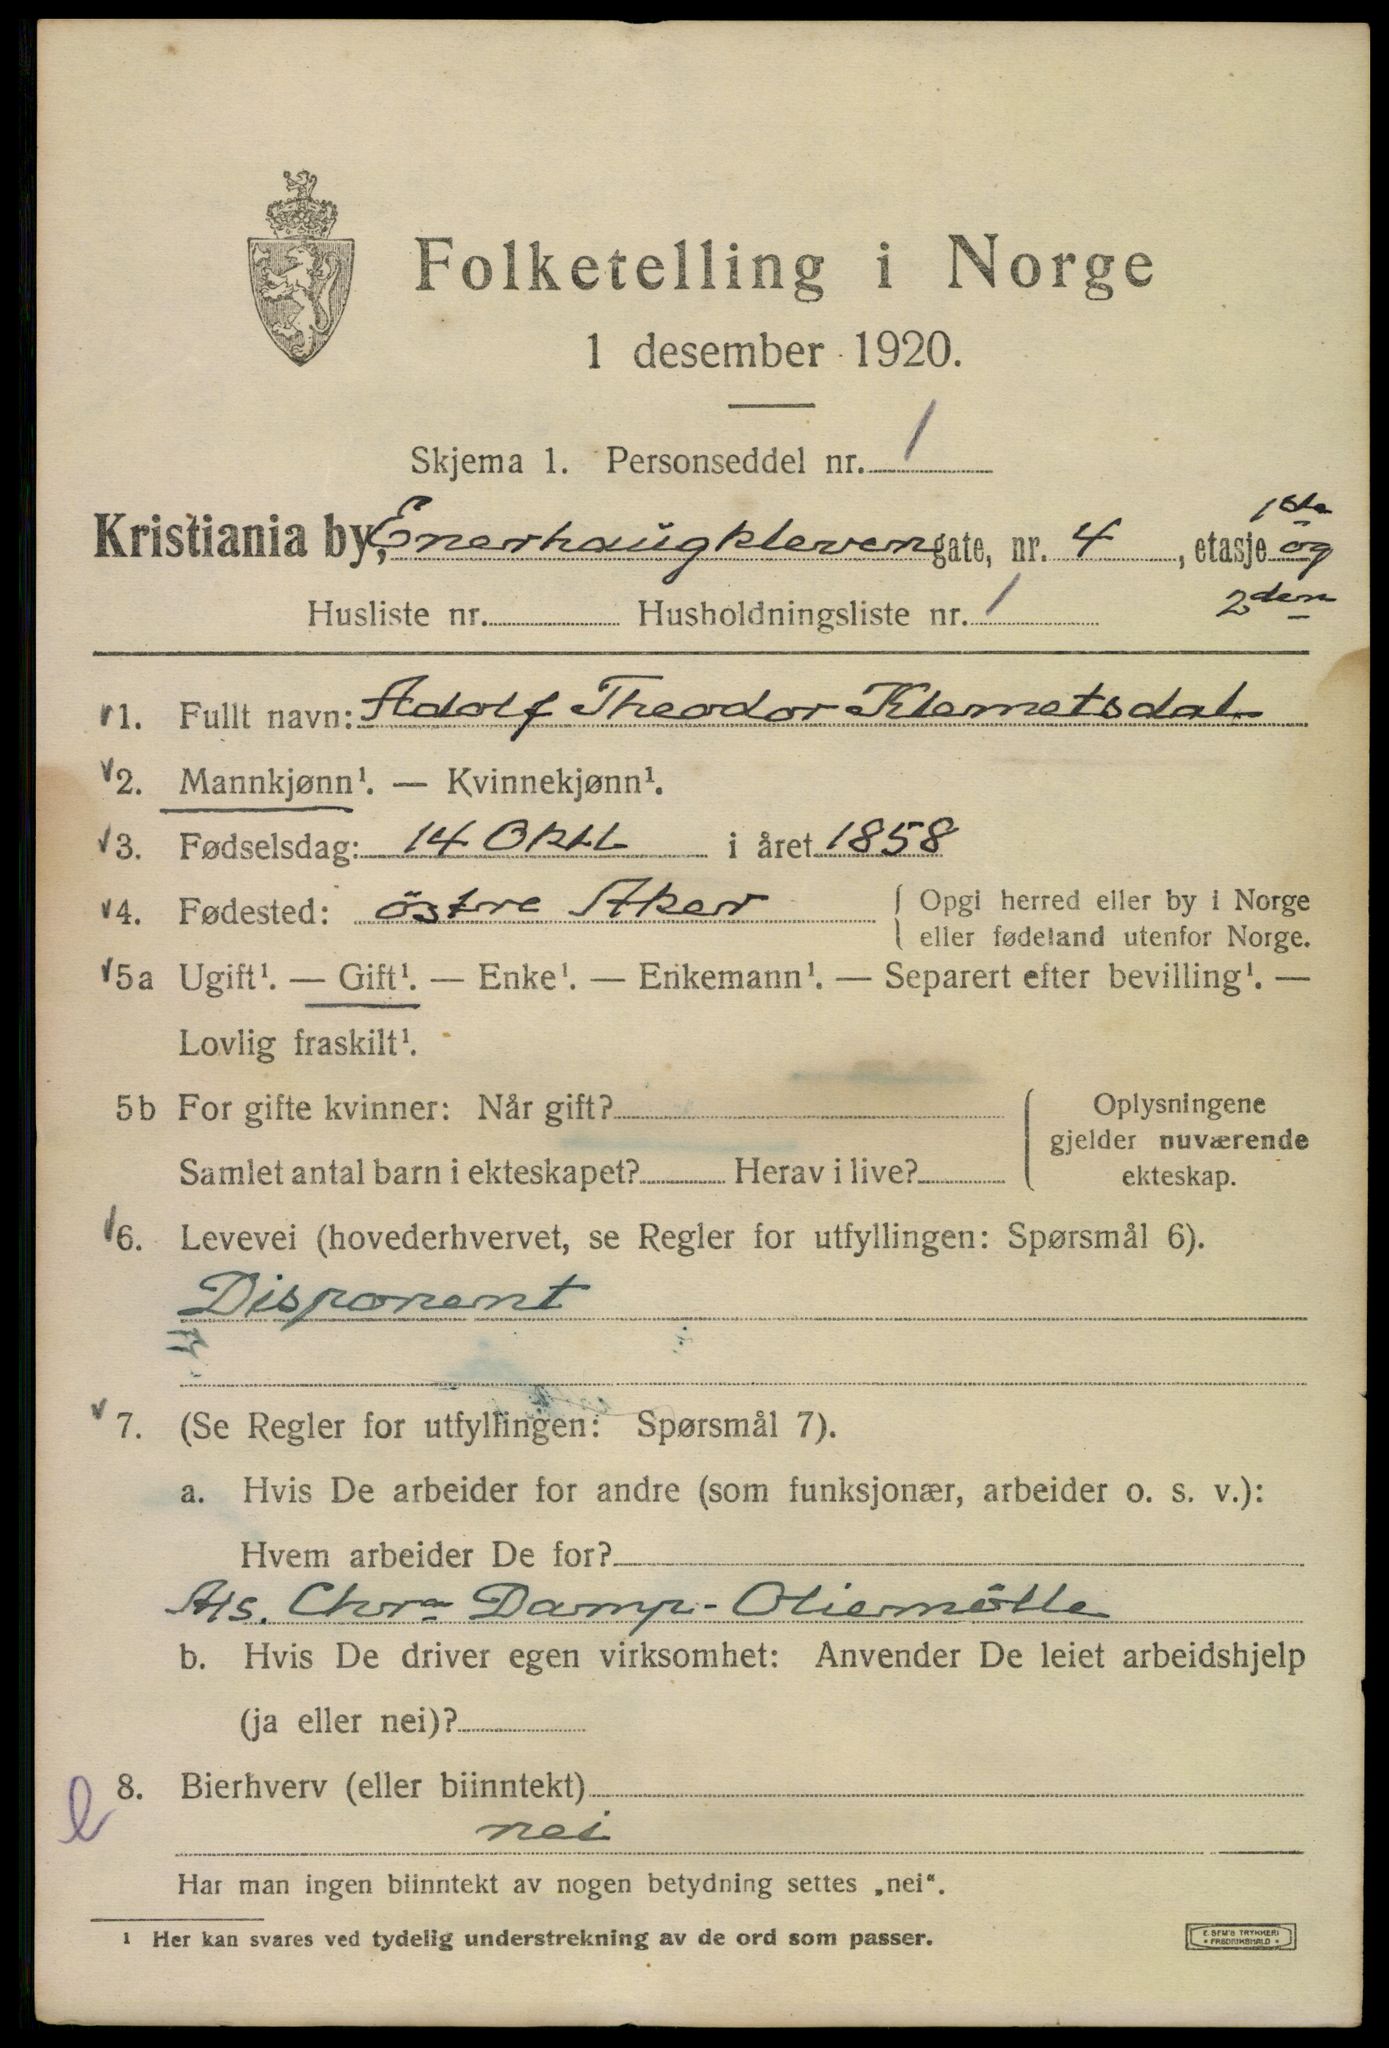 Folketelling i Norge
1 desember 1920.
Skjema 1. Personseddel nr. 1
Kristiania by, Enerhaugkleven gate, nr. 4, etasje 1ste og 2den
Husliste nr. Husholdningsliste nr. 1
1. Fullt navn: Adolf Theodor Klemetsdal
2. Mannkjønn¹. — Kvinnekjønn¹.
3. Fødselsdag: 14 Oktb i året 1858
4. Fødested: östre Aker { Opgi herred eller by i Norge
eller fødeland utenfor Norge.
5a Ugift¹. — Gift¹. — Enke¹. — Enkemann¹. — Separert efter bevilling¹. —
Lovlig fraskilt¹.
5b For gifte kvinner: Når gift? { Oplysningene
gjelder nuværende
Samlet antal barn i ekteskapet? Herav i live? ekteskap.
6. Levevei (hovederhvervet, se Regler for utfyllingen: Spørsmål 6).
Disponent
7. (Se Regler for utfyllingen: Spørsmål 7).
a. Hvis De arbeider for andre (som funksjonær, arbeider o. s. v.):
Hvem arbeider De for?
A/s. Chra Damp-Oliemölle
b. Hvis De driver egen virksomhet: Anvender De leiet arbeidshjelp
(ja eller nei)?
8. Bierhverv (eller biinntekt)
nei
Har man ingen biinntekt av nogen betydning settes „nei“.
¹ Her kan svares ved tydelig understrekning av de ord som passer.
E. SEM'S TRYKKERI
* FREDRIKSHALD *